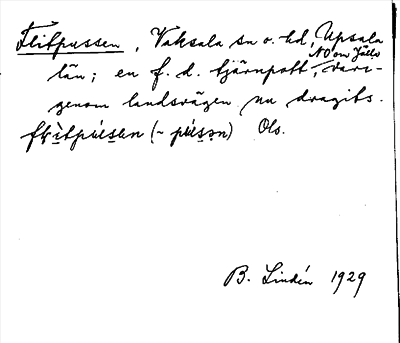 Flitpussen, Vaksala sn o. hd, Upsala
län; en f. d. tjärnpott, NO om Jälla, vari-
genom landsvägen nu dragits.
(~ pú̀sǝn) Ols.
B. Lindén 1929